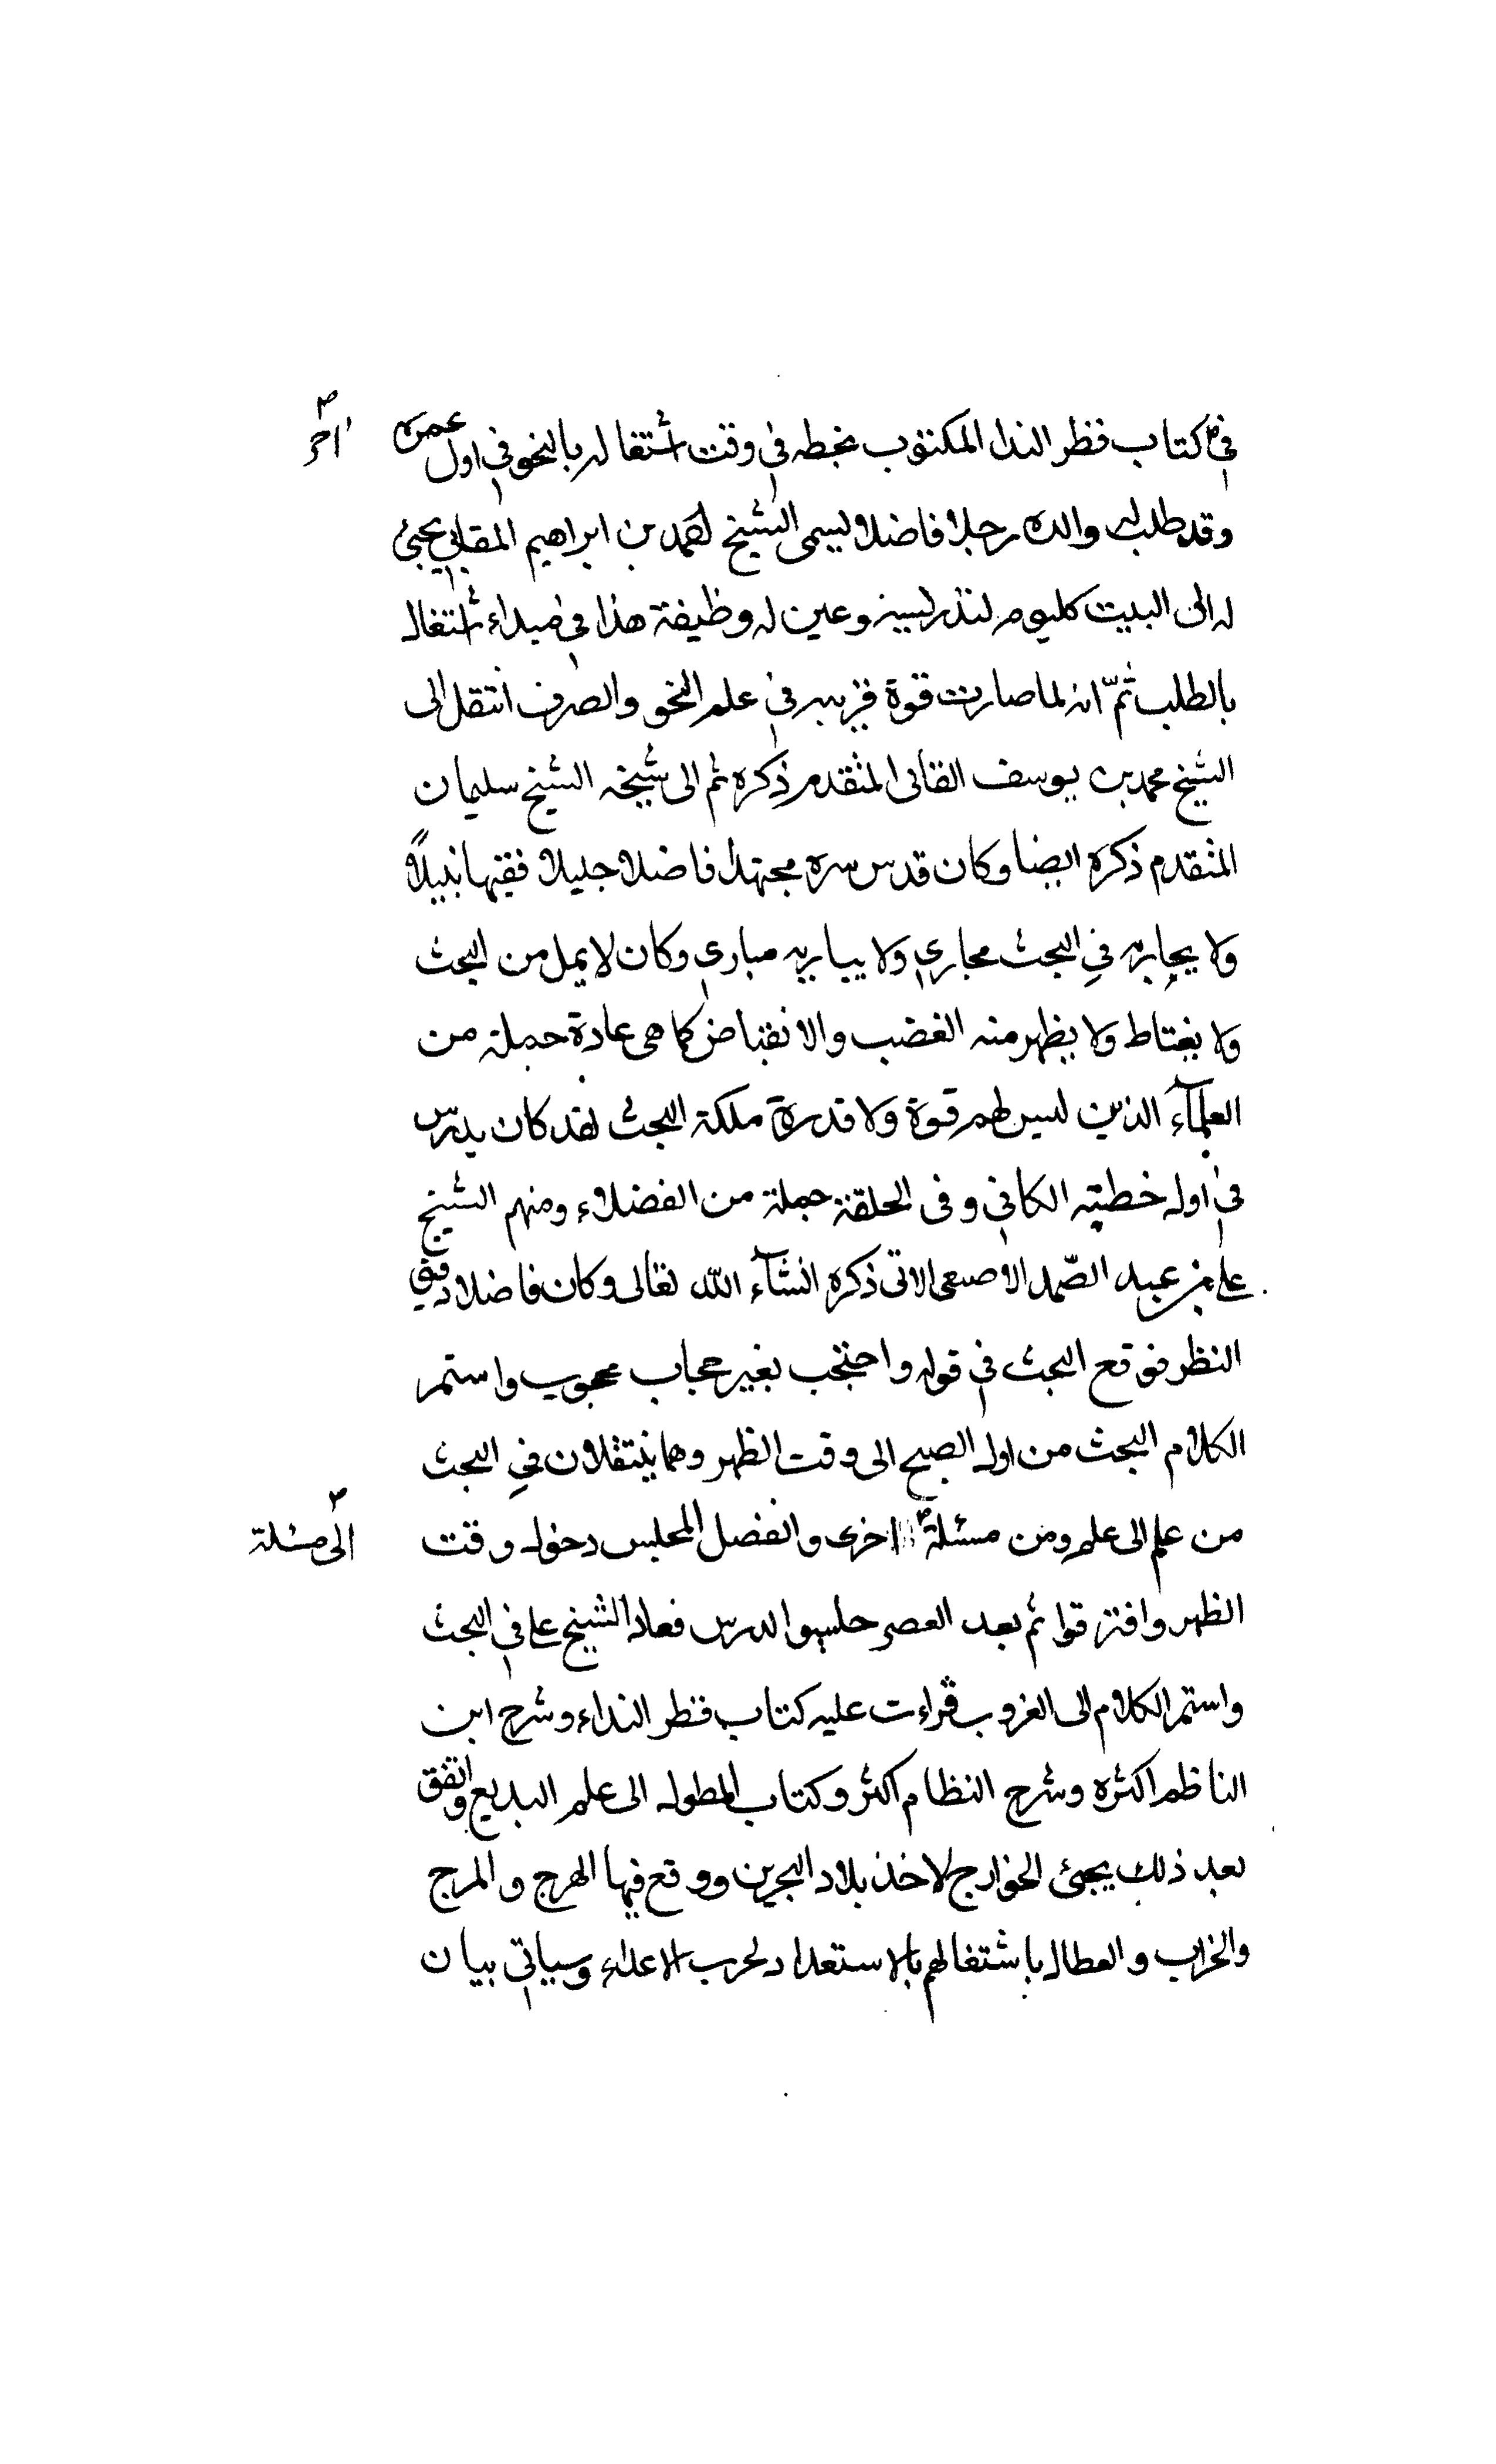 في كتاب قطر الندا المكتوب بخطه في وقت اشتغاله بالنحو في اول عمره
اخر
وقد طلب له والده رجلا فاضلا يسمى الشيخ احمد بن ابراهيم المقابي يجيئ
له الى البيت كليوم لتدريسه وعين له وظيفة هذا في مبداء اشتغاله
بالطلب ثمّ انه لما صارت قوة قريبه في علم النحو والصرف انتقل الى
الشيخ محمد بن يوسف المتقدم ذكره ثم الى شيخه الشيخ سليمان
المتقدم ذكره ايضا وكان قدس سره مجتهدا فاضلا جليلا فقيها نبيلاً
ولا يجاريه في البحث مجاري ولا يباريه مباري وكان لا يمل من البحث
ولا يغتاط ولا يظهر منه الغضب والانقباض كما هي عادة جملة من
العلمآء الذين ليس لهم قوة ولا قدرة ملكة البحث لقد كان يدرس
في اول خطبته الكافي وفي الحلقة جملة من الفضلاء ومنهم الشيخ
علي بن عبد الصّمد الاصبعي الاتي ذكره انشآء الله تعالى وكان فاضلا دقيق
النظر فوقع البحث في قوله واحتجب بغير حجاب محجوب واستمر
الكلام البحث من اول الصبح الى وقت الظهر وهما ينتقلان في البحث
من علم الى علم ومن مسئلة اخرى وانفصل المجلس دخول وقت
الى مسئلة
الظهر وافترقوا ثم بعد العصر جلسوا الدرس فعاد الشيخ علي في البحث
واستمر الكلام الى الغروب قراءت عليه كتاب قطر النداء وشرح ابن
الناظم اكثره وشرح النظام اكثر وكتاب المطول الى علم البديع واتفق
بعد ذلك يجيئ الخوارج لاخذ بلاد البحرين ووقع فيها الهرج والمرج
والخراب والعطال باشتغالهم بالاستعداد لحرب الاعداء وسياتي بيان